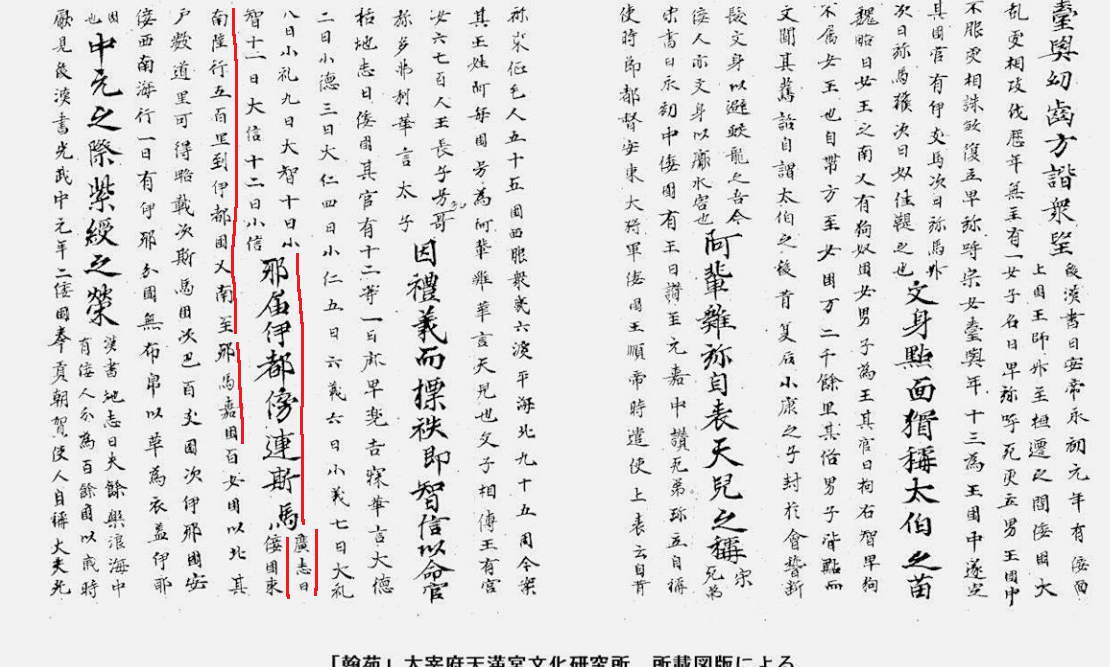 臺與幼齒方諧衆望
後漢書曰安帝永初元年有倭面
上國王師外至桓遷之間倭國大
乱更相攻伐歴年無主有一女子名曰卑弥呼死更立男王國中
不服更相誅敘復立卑弥呼宗女臺與年十三為王國中遂定
其國官有伊支馬次曰弥馬外
次曰弥馬獲次曰奴佳鞮之也
文身點面猶稱太伯之苗
魏略曰女王之南又有狗奴國女男子為王其官曰拘右智卑狗
不属女王也自帶方至女國万二千餘里其俗男子皆點而
文聞其舊語自謂太伯之後昔夏后小康之子封於會嵇断
髮文身以避蛟龍之吾今
倭人亦文身以厭水害也
阿輩雞弥自表天兒之稱
宋
死弟
宋書曰永初中倭國有王曰讃至元嘉中讃死弟珎立自稱
使時節都督安東大将軍倭國王順帝時遣使上表云自昔
祢東征毛人五十五國西服衆夷六渡平海北九十五國今案
其王姓阿毎國号為阿輩雞華言天児也父子相傳王有宮
女六七百人王長子号哥
弥多弗利華言太子
因禮義而標秩即智信以命官
括地志曰倭國其官有十二等一曰麻卑兜吉寐華言大徳
二曰小徳三曰大仁四曰小仁五曰六義六曰小義七曰大礼
八曰小礼九曰大智十曰小
智十一曰大信十二曰小信
邪届伊都傍連斯馬
廣志曰
倭國東
南陸行五百里到伊都國又南至邪馬嘉國百女國以北其
戸数道里可得略載次斯馬國次巴百支國次伊邪國安
倭西南海行一日有伊邪分國無布帛以革為衣盖伊耶
國也
中元之際紫綬之榮
漢書地志曰夫餘樂浪海中
有倭人分為百餘國以歳時
獻見後漢書光武中元年二倭國奉貢朝賀使人自稱大夫光
「翰苑」太宰府天満宮文化研究所 所載図版による